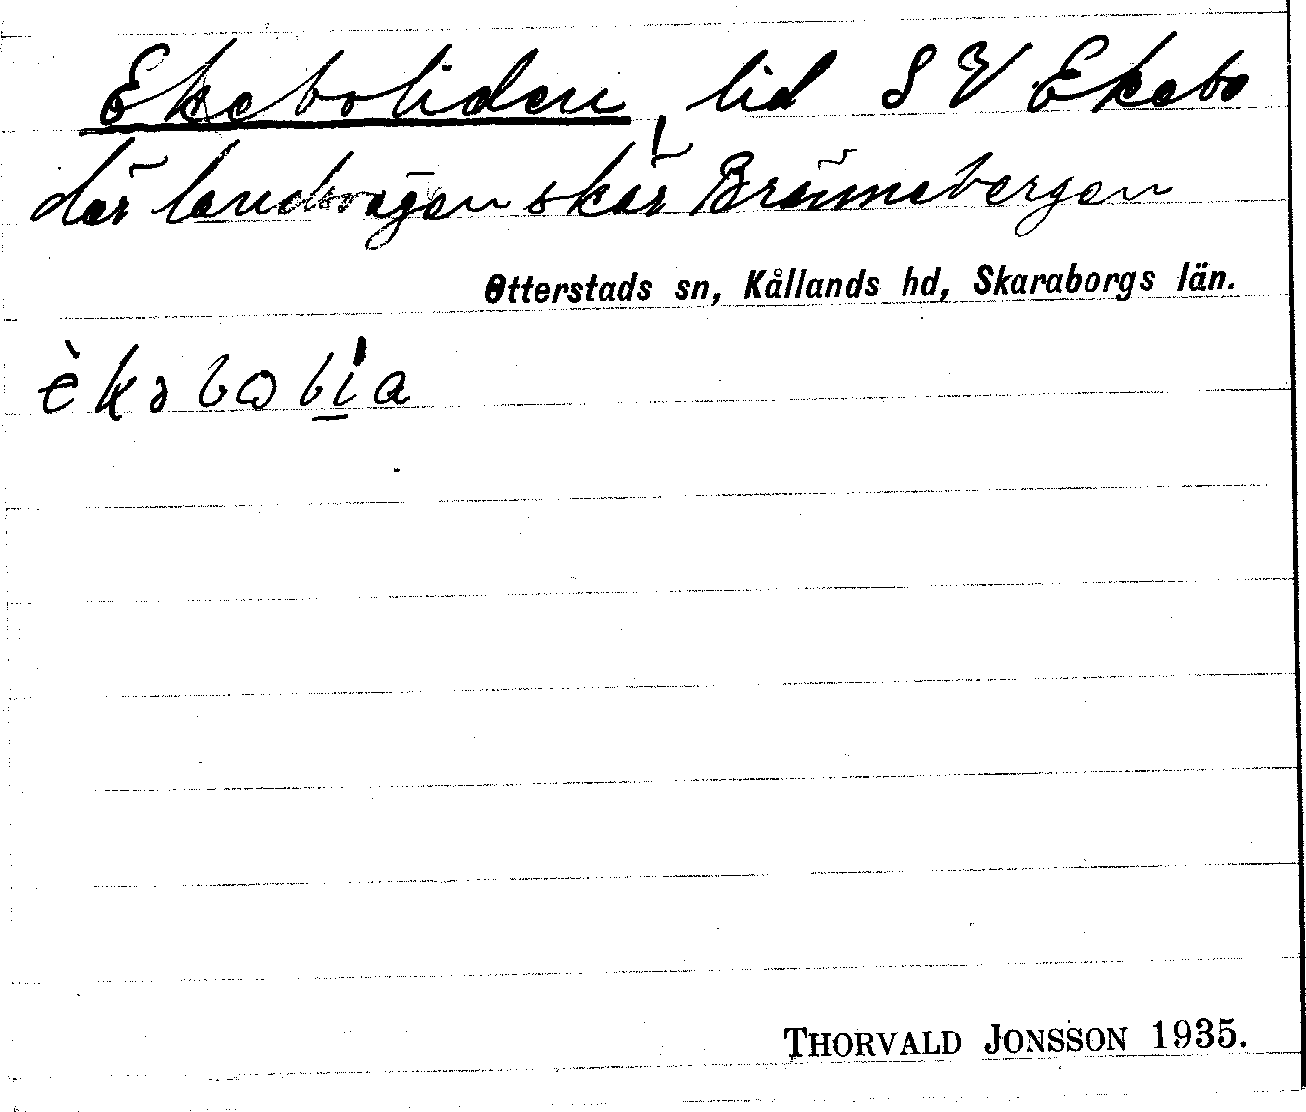 Ekeboliden, lid SV Ekebo
där landsvägen skär Brännebergen
Otterstads sn, Kållands hd, Skaraborgs län.
èkəbωlia
THORVALD JONSSON 1935.